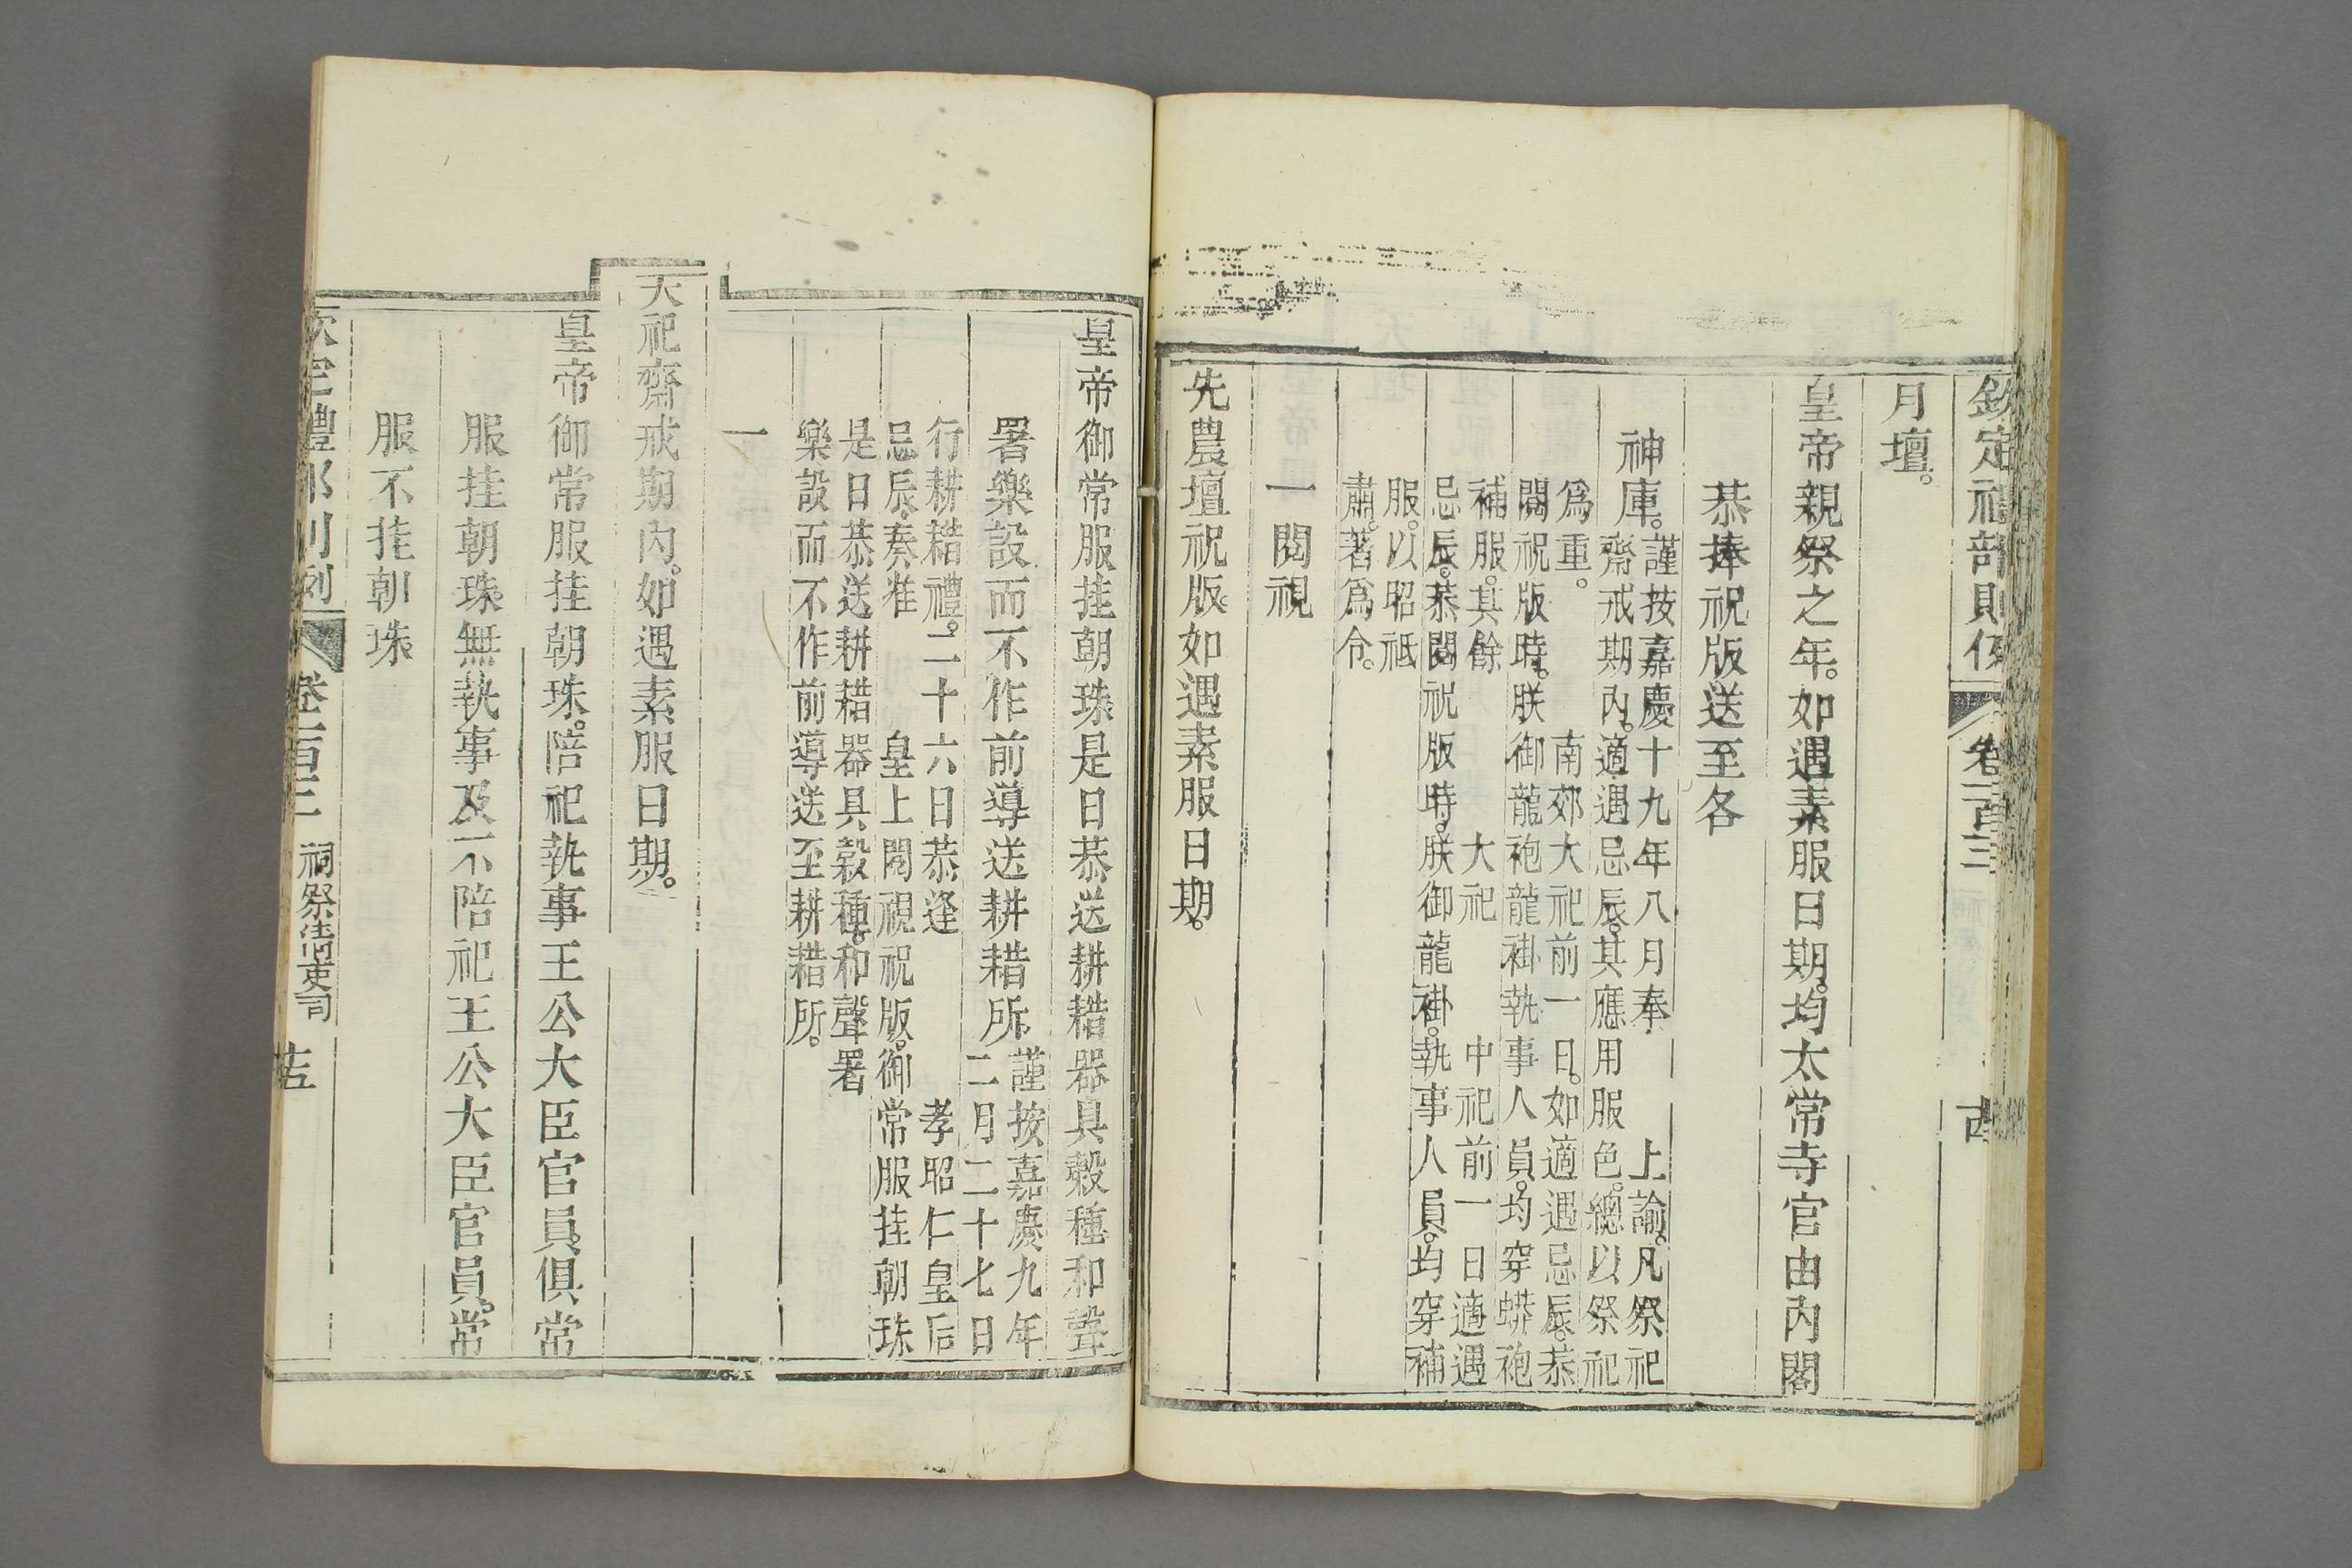 欽定禮部則例 卷一百三
月壇。
皇帝親祭之年。如遇素服日期。均太常寺官由內閣
恭捧祝版送至各
神庫。
謹按嘉慶十九年八月奉 上諭。凡祭祀
齋戒期內。適遇忌辰。其應用服色。總以祭祀
爲重。 南郊大祀前一日。如適遇忌辰。恭
閱祝版時。朕御龍袍龍褂執事人員。均穿蟒袍
補服。其餘 大祀 中祀前一日適遇
忌辰。恭閱祝版時。朕御龍褂。執事人員。均穿補
服。以昭祗
肅。著爲令。
一閱視
先農壇祝版。如遇素服日期。
皇帝御常服挂朝珠是日恭送耕耤器具穀種和聲
署樂設而不作前導送耕耤所。
謹按嘉慶九年
二月二十七日
行耕耤禮。二十六日恭逢 孝昭仁皇后
忌辰。奏准 皇上閱視祝版。御常服挂朝珠
是日恭送耕耤器具穀種。和聲署
樂設而不作前導送至耕耤所。
一
天祀齋戒期內。如遇素服日期。
皇帝御常服挂朝珠。陪祀執事王公大臣官員俱常
服挂朝珠無執事及不陪祀王公大臣官員。常
服不挂朝珠
欽定禮部則例 卷一百三 祠祭清吏司 十五